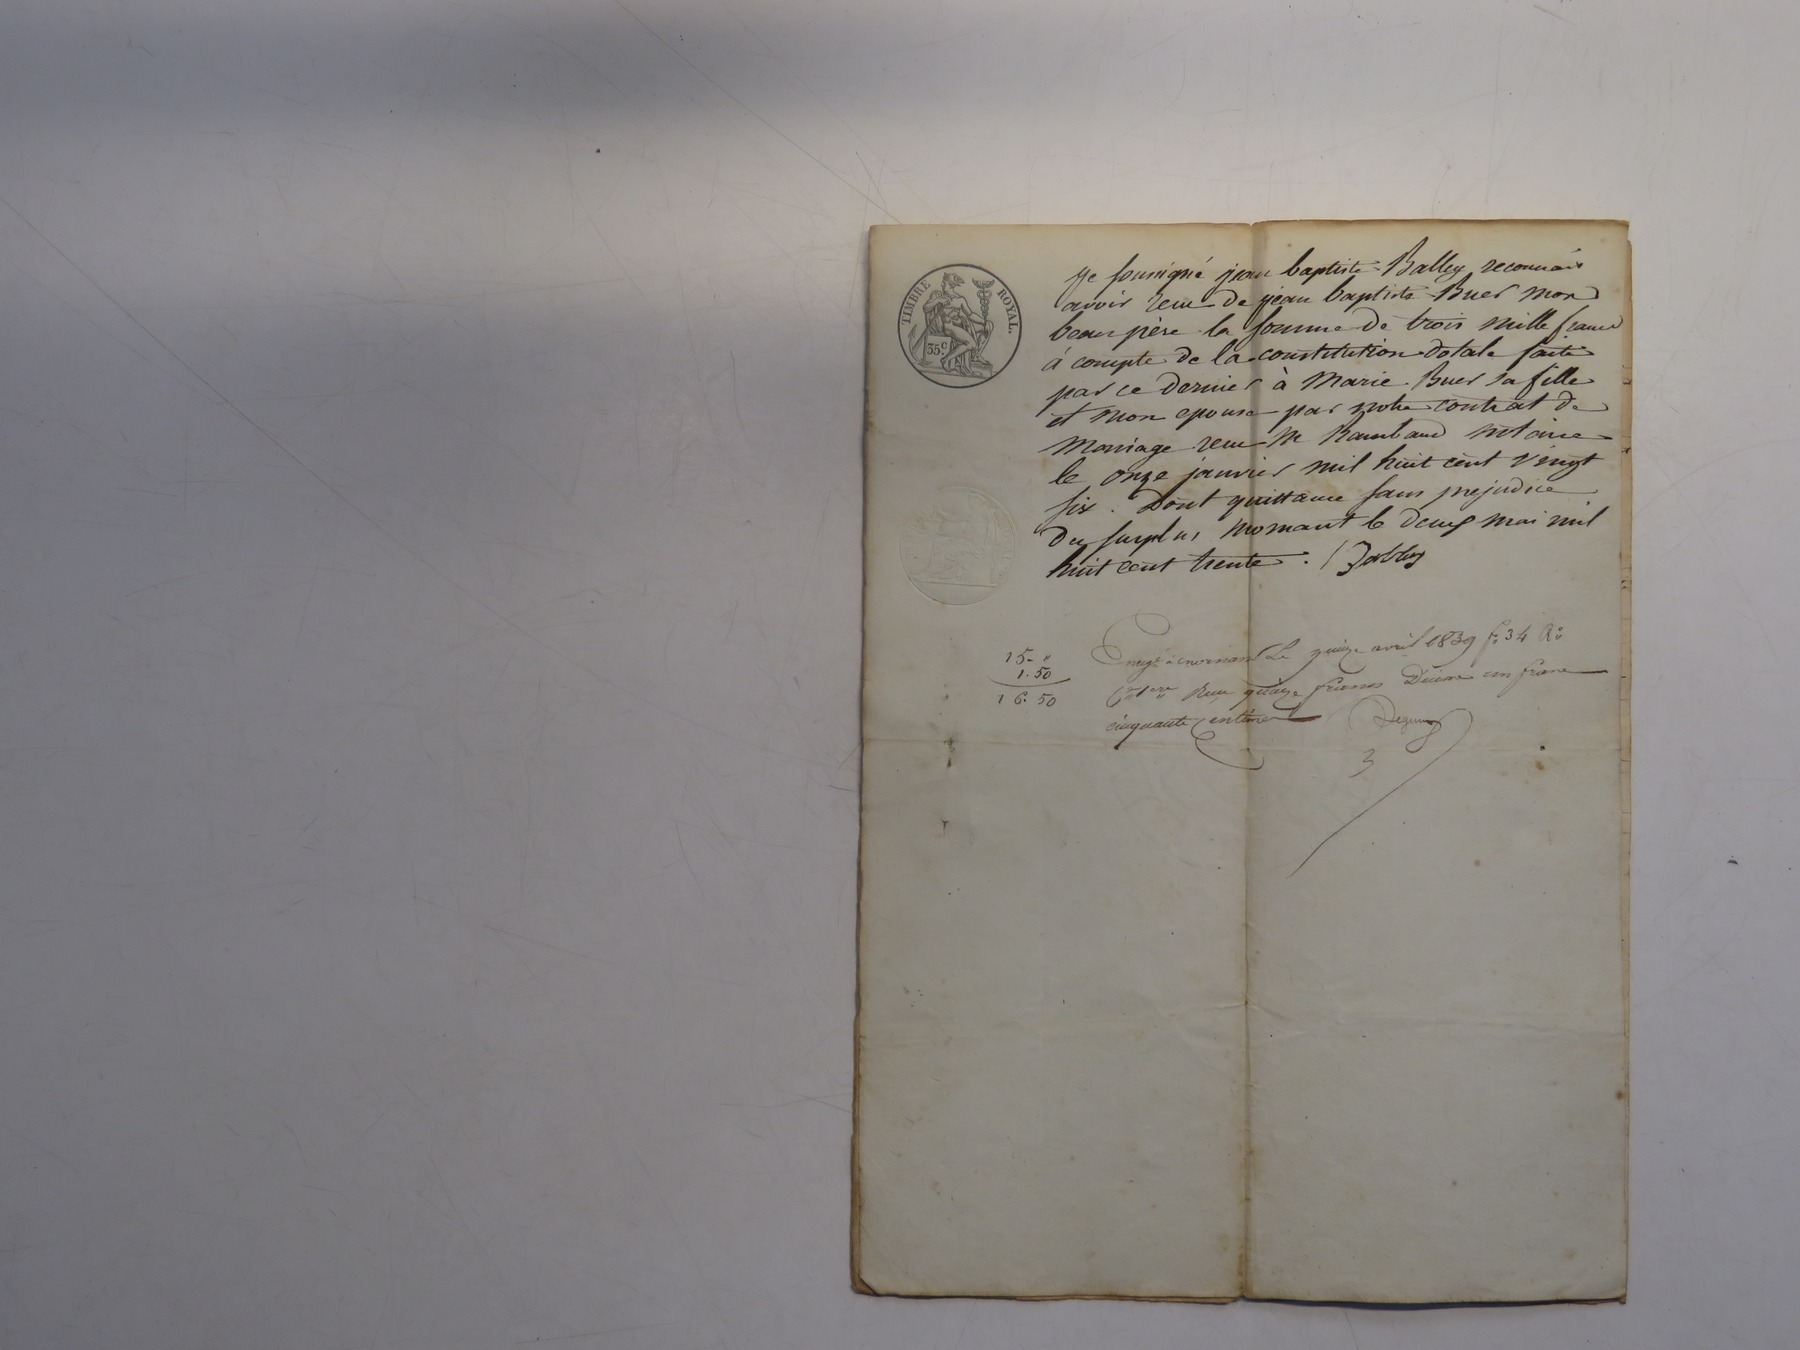 TIMBRE ROYAL.
35 c.
Je soussigné jean baptiste Balley reconnais
avoir reçu de jean baptiste Buer mon
beau père la somme de trois mille francs
à compte de la constitution dotale faite
par ce dernier à Marie Buer sa fille
et mon epouse par notre contrat de
Mariage reçu Me Rambaud notaire
le onze janvier mil huit cent vingt
six. Dont quittance sans prejudice
du surplus mornant le deux mai mil
huit cent trente. Balley
15 - "
1.50
16.50
Enregt à mornant Le quinze avril 1839 fo 34 Ro
Reçu quinze francs Décime un franc
cinquante centimes
3